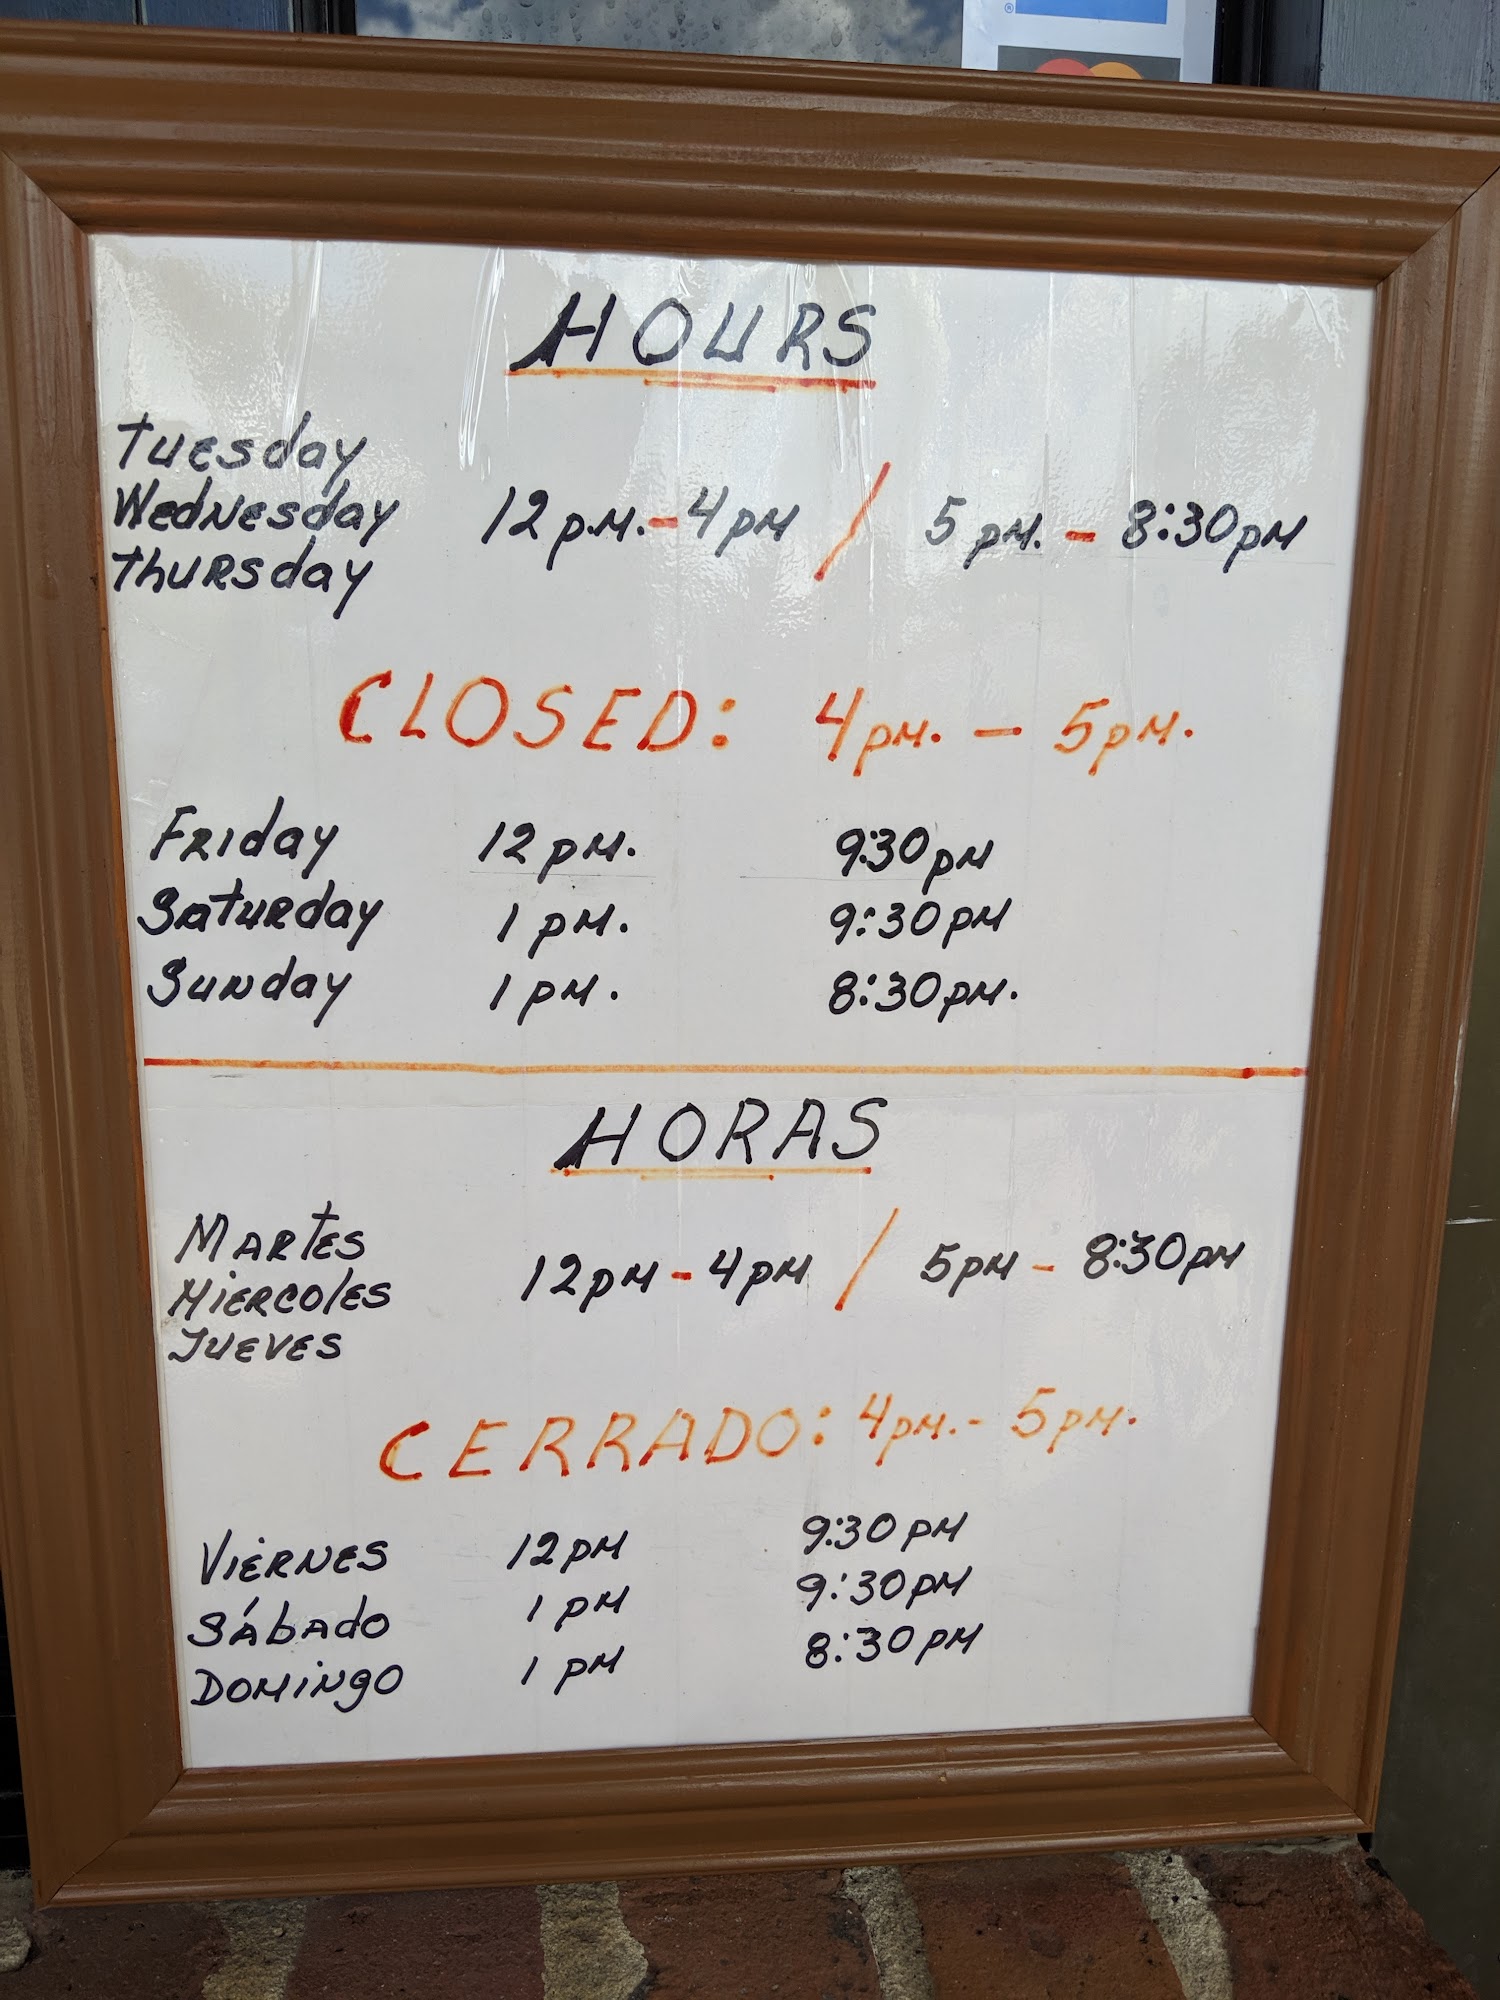 HOURS
Tuesday
Wednesday 12 p.m. - 4 pm / 5 pm. - 8:30 pm
Thursday
CLOSED: 4 pm. - 5 pm.
Friday 12 pm. 9:30 pm
Saturday 1 pm. 9:30 pm
Sunday 1 pm. 8:30 pm.
HORAS
Martes
Miercoles 12 pm - 4 pm / 5 pm - 8:30 pm
Jueves
CERRADO: 4 pm. - 5 pm.
Viernes 12 pm 9:30 pm
Sábado 1 pm 9:30 pm
Domingo 1 pm 8:30 pm